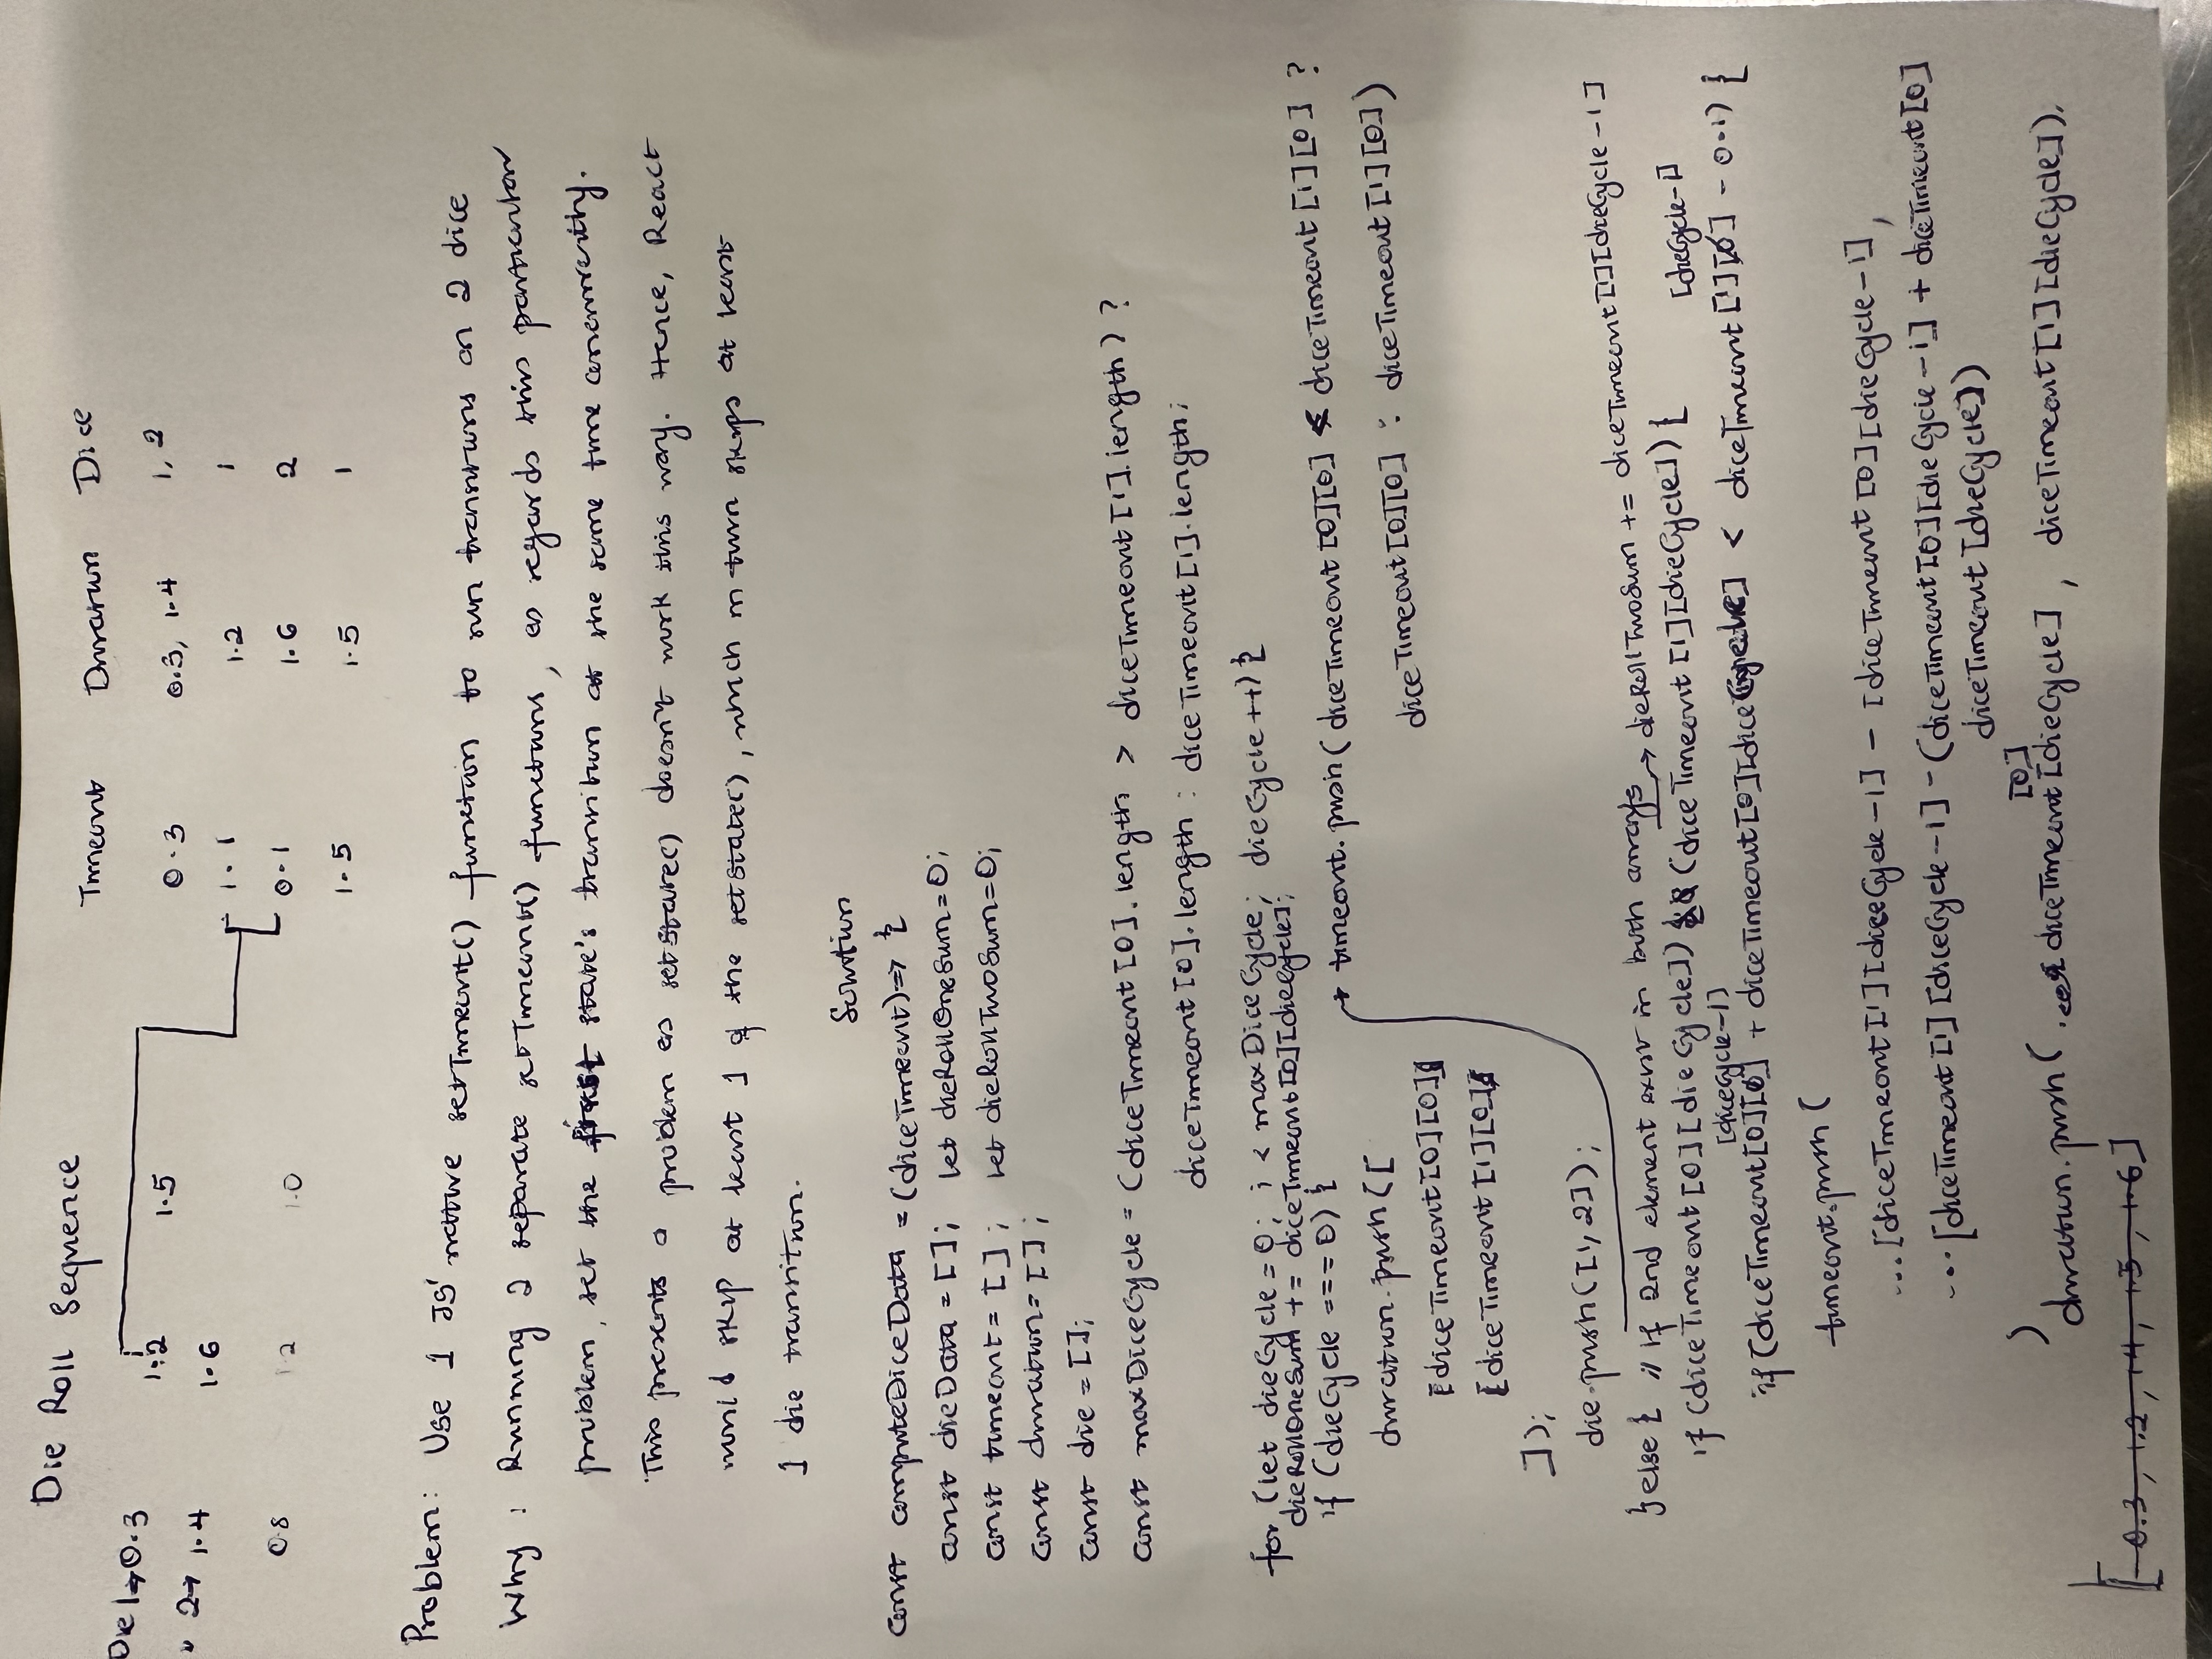 Die Roll Sequence
Timeout Duration Dice
Die 1→ 0.3 1.2 1.5 0.3 0.3, 1.4 1, 2
" 2→ 1.4 1.6 1.1 1.2 1
0.8 1.2 1.0 0.1 1.6 2
1.5 1.5 1
Problem: Use 1 JS' native setTimeout() function to run transitions on 2 dice
Why: Running 2 separate setTimeout() functions, as regards this particular
problem, set the first state's transition at the same time concurrently.
This presents a problem as setState() doesn't work this way. Hence, React
would skip at least 1 of the setState(), which in turn skips at least
1 die transition.
Solution
const computeDiceData = (diceTimeout) => {
const dieData = []; let dieRollOneSum=0;
const timeout = []; let dieRollTwoSum=0;
const duration = [];
const die = [];
const maxDiceCycle = (diceTimeout[0].length > diceTimeout[1].length) ?
diceTimeout[0].length : diceTimeout[1].length;
for (let dieCycle = 0; i < maxDiceCycle; dieCycle ++) {
dieRollOneSum += diceTimeout[0][dieCycle];
if (dieCycle === 0) {
→ timeout.push(diceTimeout[0][0] < diceTimeout[1][0] ?
duration.push([
diceTimeout[0][0] : diceTimeout[1][0])
[diceTimeout[0][0]]
[diceTimeout[1][0]]
]);
die.push([1, 2]);
} else { // If 2nd element exist in both arrays → dieRollTwoSum += diceTimeout[1][dieCycle-1]
if (diceTimeout[0][dieCycle]) && (diceTimeout[1][dieCycle]) {
[diceCycle-1] [dieCycle-1]
if (diceTimeout[0][0] + diceTimeout[0][diceCycle] < diceTimeout[1][0] - 0.1) {
timeout.push(
...[diceTimeout[1][diceCycle-1] - [diceTimeout[0][dieCycle-1],
...[diceTimeout[1][diceCycle-1] - (diceTimeout[0][dieCycle-1] + diceTimeout[0]
diceTimeout[dieCycle])
)
[0]
duration.push( diceTimeout[dieCycle], diceTimeout[1][dieCycle]),
[0.3, 1.2, 1.4, 1.5, 1.6]